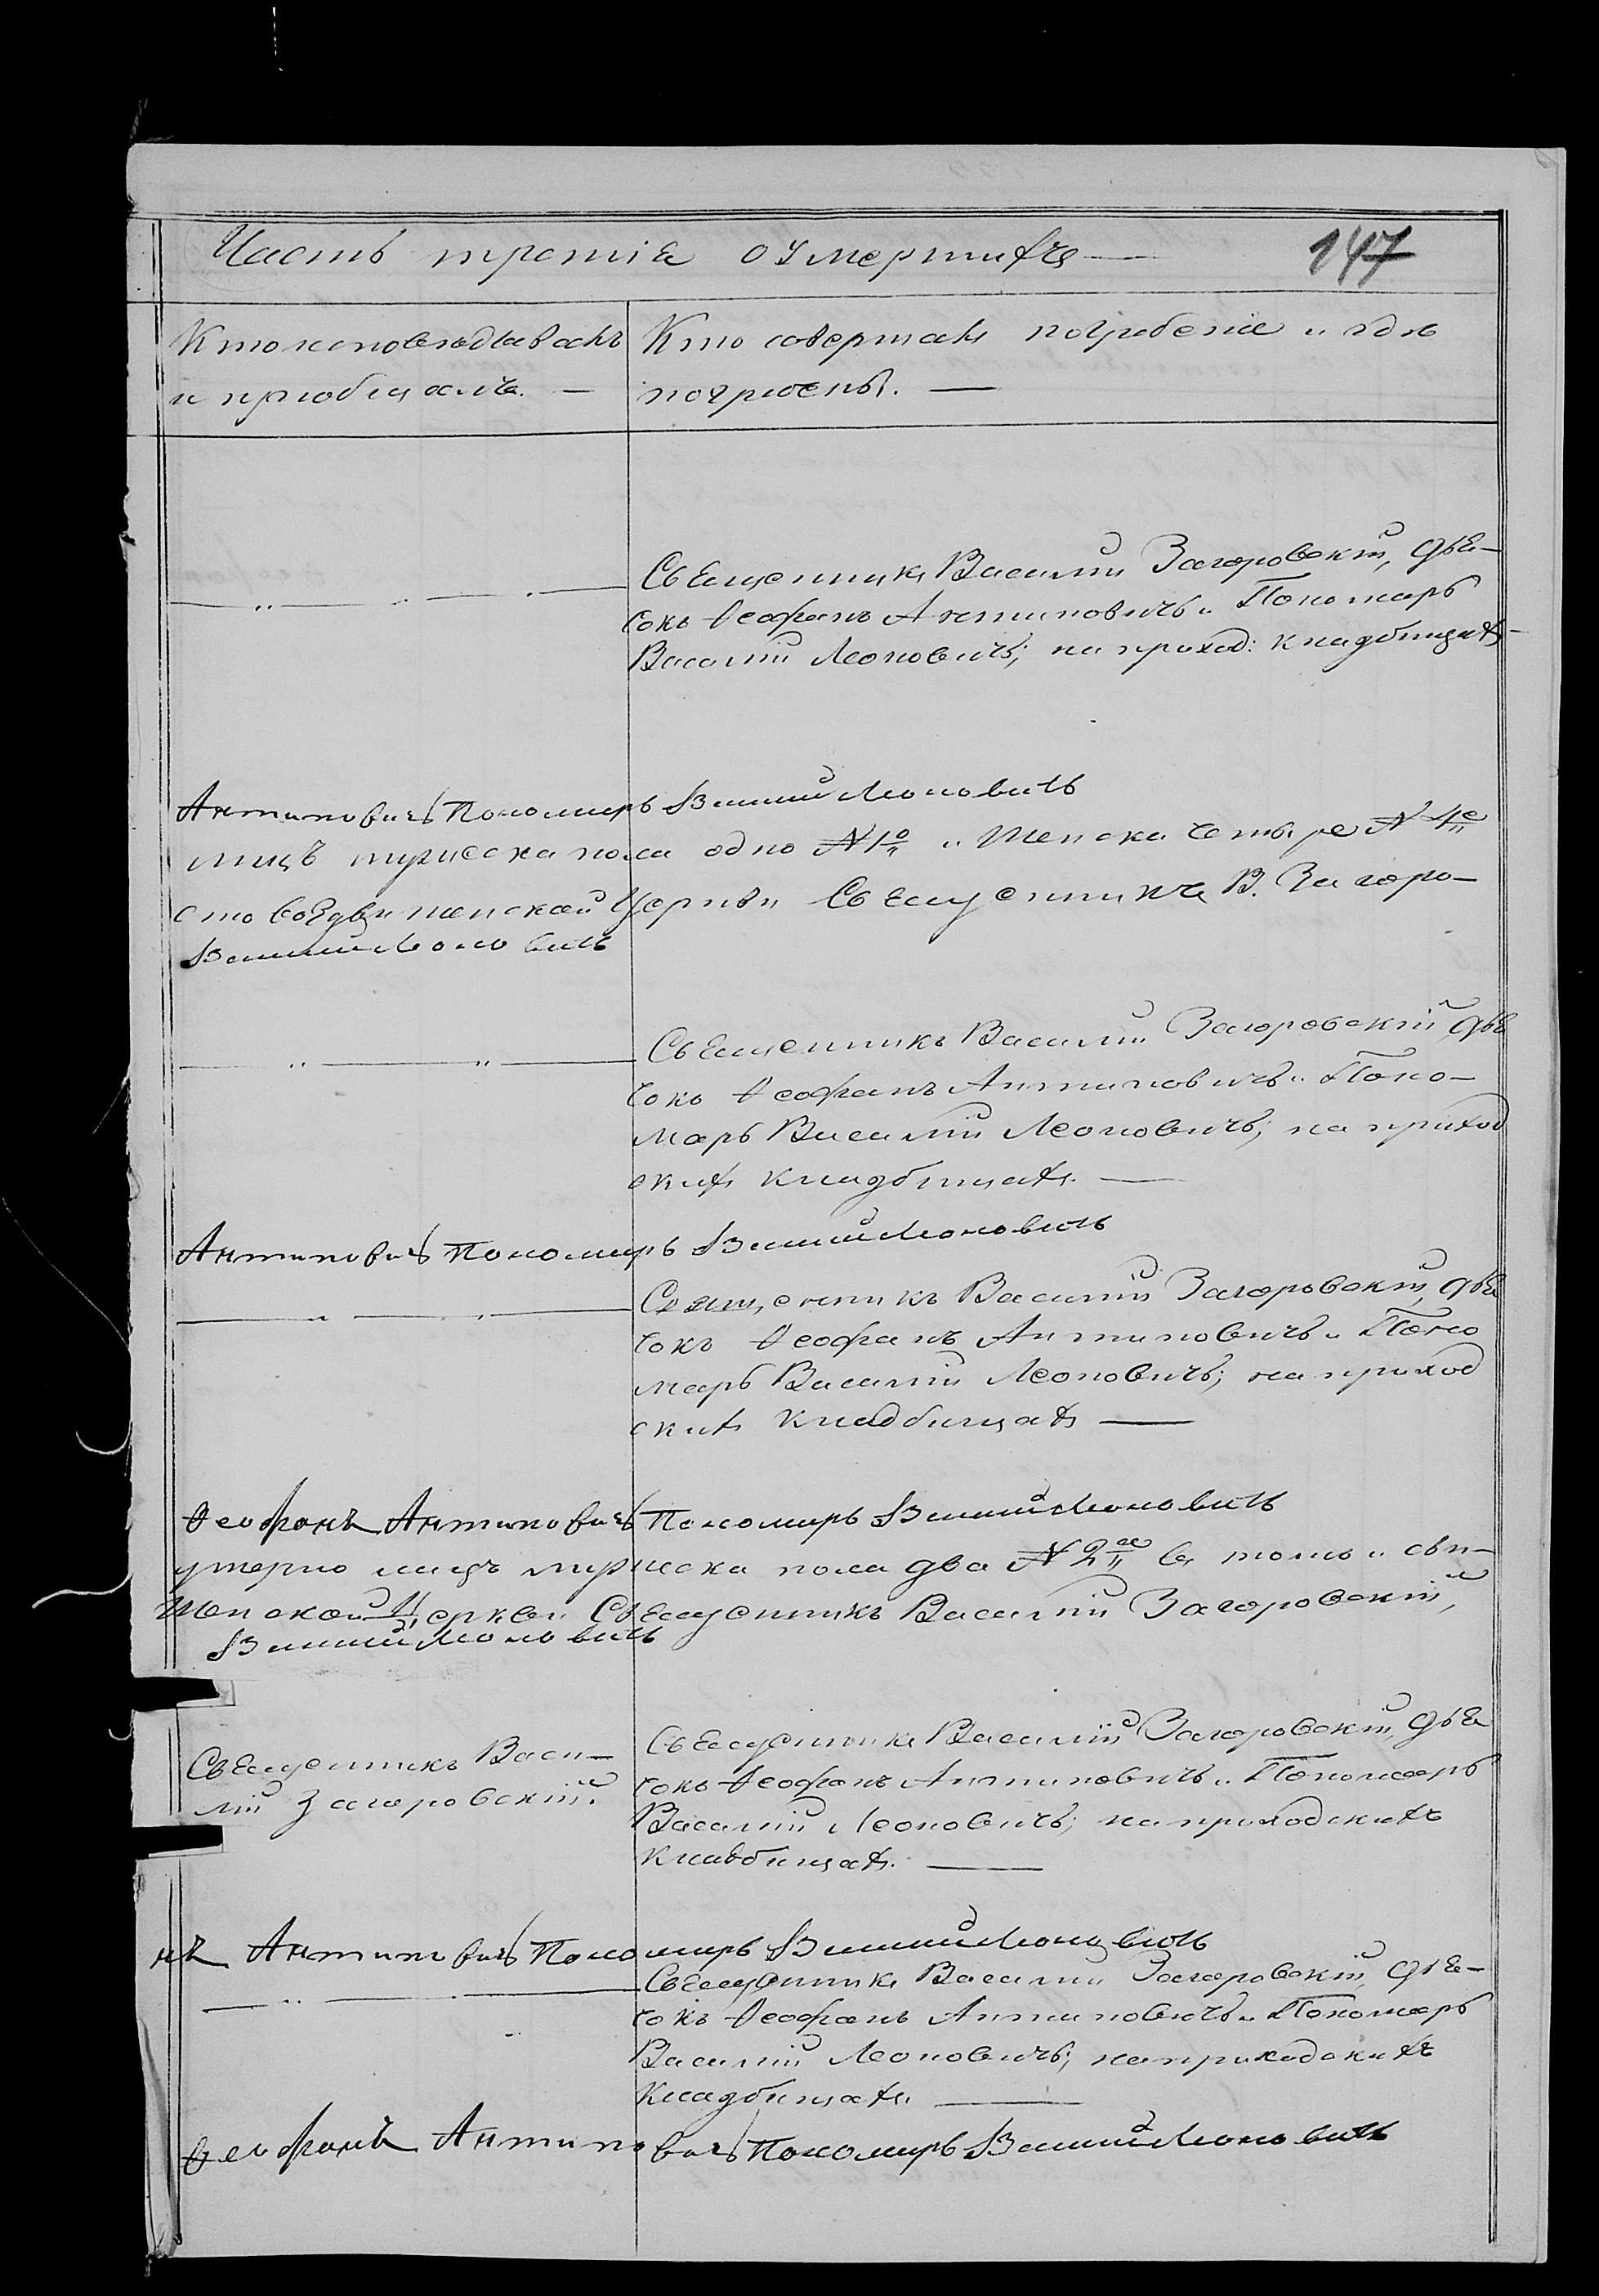 Часть третія оумершихъ 147
Кто исповѣдывалъ
и пріобщалъ.
Кто совершалъ погребеніе и гдѣ
погребены.
Священникъ Василій Загоровскій, дья-
чокъ Ѳеофанъ Антиповичъ и Пономарь
Василій Леоновичъ; на приход: кладбищахъ
Антиповичъ Пономарь Василій Леоновичъ
лицъ мужеска пола одно №1º и Женска четыре №4е
стовоздвиженской Церкви Священникъ В. Загоро-
Василій Леоновичъ
Священникъ Василій Загоровскій, дья
чокъ Ѳеофанъ Антиповичъ и Поно-
марь Василій Леоновичъ; на приход
скихъ кладбищахъ.
Антиповичъ Пономарь Василій Леоновичъ
Священникъ Василій Загоровскій, дья
чокъ Ѳеофанъ Антиповичъ и Поно
марь Василій Леоновичъ; на приход
скихъ кладбищахъ
Ѳеофанъ Антиповичъ Пономарь Василій Леоновичъ
умерло лицъ мужеска пола два №2а въ томъ и сви-
Женской Церкви Священникъ Василій Загоровскій,
Василій Леоновичъ
Священникъ Васи-
лій Загоровскій.
Священникъ Василій Загоровскій, дья
чокъ Ѳеофанъ Антиповичъ и Пономарь
Василій Леоновичъ; на приходскихъ
кладбищахъ.
нъ Антиповичъ Пономарь Василій Леоновичъ
Священникъ Василій Загоровскій, дья-
чокъ Ѳеофанъ Антиповичъ и Пономарь
Василій Леоновичъ; на приходскихъ
кладбищахъ
Ѳеофанъ Антиповичъ Пономарь Василій Леоновичъ